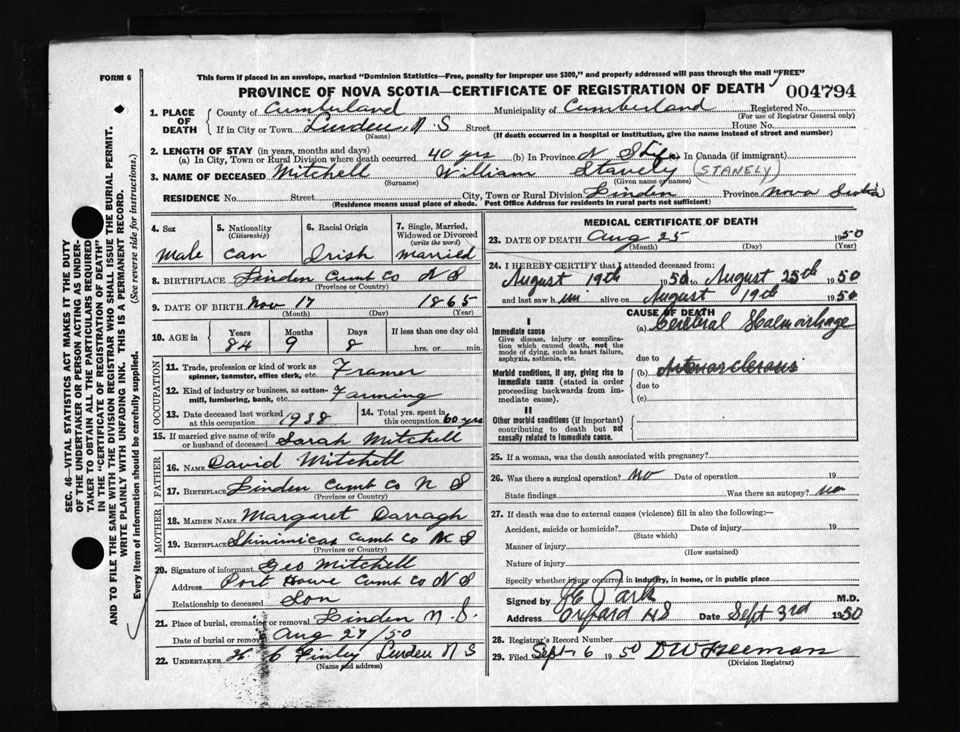 FORM 6
This form if placed in an envelope, marked "Dominion Statistics—Free, penalty for improper use $300," and properly addressed will pass through the mail "FREE"
PROVINCE OF NOVA SCOTIA—CERTIFICATE OF REGISTRATION OF DEATH 004794
SEC. 46—VITAL STATISTICS ACT MAKES IT THE DUTY
OF THE UNDERTAKER OR PERSON ACTING AS UNDER-
TAKER TO OBTAIN ALL THE PARTICULARS REQUIRED
IN THE "CERTIFICATE OF REGISTRATION OF DEATH"
AND TO FILE THE SAME WITH THE DIVISION REGISTRAR WHO SHALL ISSUE THE BURIAL PERMIT.
WRITE PLAINLY WITH UNFADING INK. THIS IS A PERMANENT RECORD.
Every item of information should be carefully supplied. (See reverse side for instructions.)
1. PLACE OF DEATH
County of Cumberland Municipality of Cumberland Registered No.
(For use of Registrar General only)
If in City or Town Linden, N S Street House No.
(Name) (If death occurred in a hospital or institution, give the name instead of street and number)
2. LENGTH OF STAY (in years, months and days)
(a) In City, Town or Rural Division where death occurred 40 yrs (b) In Province N S life (c) In Canada (if immigrant)
3. NAME OF DECEASED Mitchell William Stavely (STANELY)
(Surname) (Given name or names)
RESIDENCE No. Street City, Town or Rural Division Linden Province Nova Scotia
(Residence means usual place of abode. Post Office Address for residents in rural parts not sufficient)
4. Sex
Male
5. Nationality
(Citizenship)
Can
6. Racial Origin
Irish
7. Single, Married,
Widowed or Divorced
(write the word)
married
8. BIRTHPLACE Linden Cumb Co N S
(Province or Country)
9. DATE OF BIRTH Nov 17 1865
(Month) (Day) (Year)
10. AGE in Years Months Days If less than one day old
84 9 8 hrs. or min.
OCCUPATION
11. Trade, profession or kind of work as
spinner, teamster, office clerk, etc. Framer
12. Kind of industry or business, as cotton-
mill, lumbering, bank, etc. Farming
13. Date deceased last worked
at this occupation 1938
14. Total yrs. spent in
this occupation 60 yrs
15. If married give name of wife
or husband of deceased Sarah Mitchell
FATHER
16. NAME David Mitchell
17. BIRTHPLACE Linden Cumb Co N S
(Province or Country)
MOTHER
18. MAIDEN NAME Margaret Darragh
19. BIRTHPLACE Shinimicas Cumb Co N S
(Province or Country)
20. Signature of informant Geo Mitchell
Address Port Howe Cumb Co N S
Relationship to deceased Son
21. Place of burial, cremation or removal Linden N. S.
Date of burial or removal Aug 27/50
22. UNDERTAKER H C Finley Linden N S
(Name and address)
MEDICAL CERTIFICATE OF DEATH
23. DATE OF DEATH Aug 25 1950
(Month) (Day) (Year)
24. I HEREBY CERTIFY that I attended deceased from:
August 19th 1950 to August 25th 1950
and last saw him alive on August 19th 1950
CAUSE OF DEATH
I
Immediate cause
Give disease, injury or complica-
tion which caused death, not the
mode of dying, such as heart failure,
asphyxia, asthenia, etc.
(a) Cerebral Haemorrhage
due to
Morbid conditions, if any, giving rise to
immediate cause (stated in order
proceeding backwards from im-
mediate cause).
(b) Arteriosclerosis
due to
(c)
II
Other morbid conditions (if important)
contributing to death but not
causally related to immediate cause.
25. If a woman, was the death associated with pregnancy?
26. Was there a surgical operation? No Date of operation 19
State findings Was there an autopsy? no
27. If death was due to external causes (violence) fill in also the following:—
Accident, suicide or homicide? Date of injury 19
(State which)
Manner of injury
(How sustained)
Nature of injury
Specify whether injury occurred in industry, in home, or in public place
Signed by Park M.D.
Address Oxford NS Date Sept 3rd 1950
28. Registrar's Record Number
29. Filed Sept 6 1950 D W Freeman
(Division Registrar)